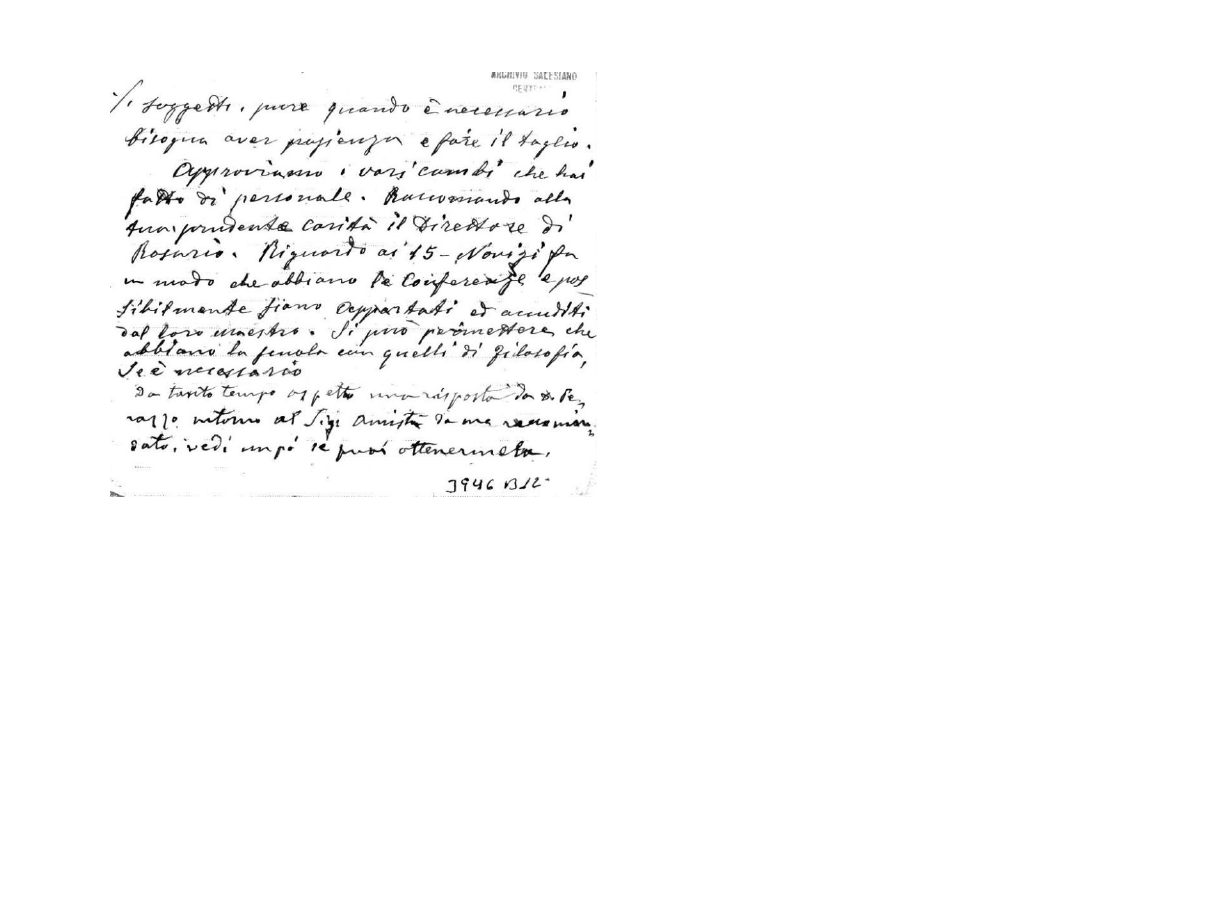 ARCHIVIO SALESIANO
CENTRALE
i soggetti, pure quando è necessario
bisogna aver pazienza e fare il taglio.
Approviamo i varj cambi che hai
fatto di personale. Raccomando alla
tua prudente carità il Direttore di
Rosario. Riguardo ai 15 - Novizi fa
in modo che abbiano le Conferenze e pos
sibilmente siano appartati ed accuditi
dal loro maestro. Si può permettere che
abbiano la scuola con quelli di filosofia,
se è necessario
Da tanto tempo aspetto una risposta da D.
intorno al Sig. da me raccoman
dato, vedi un pó se puoi ottenermela.
3946 B12